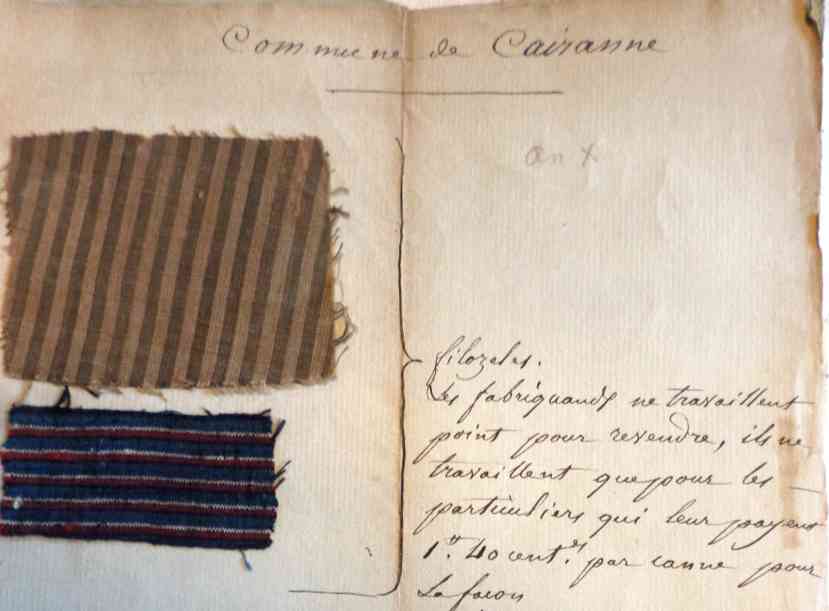 Commune de Cairanne
an X
filozeles.
Les fabriquands ne travaillent
point pour revendre, ils ne
travaillent que pour les
particuliers qui leur payent
1.tt 40 cent.es par canne pour
la façon